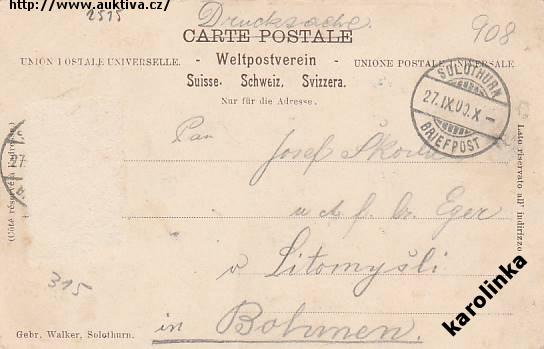 http://www.auktiva.cz/
2515
Drucksache.
908
CARTE POSTALE
UNION POSTALE UNIVERSELLE. - Weltpostverein - UNIONE POSTALE UNIVERSALE
Suisse. Schweiz. Svizzera.
Nur für die Adresse.
SOLOTHURN
27.IX.00.X-
BRIEFPOST
Pan
Josef Škoda
u d. f. Dr. Eger
v Litomyšli
in Böhmen.
(Côté réservé à l'adresse)
27
Lato riservato all' indirizzo
315
Gebr. Walker, Solothurn.
karolinka